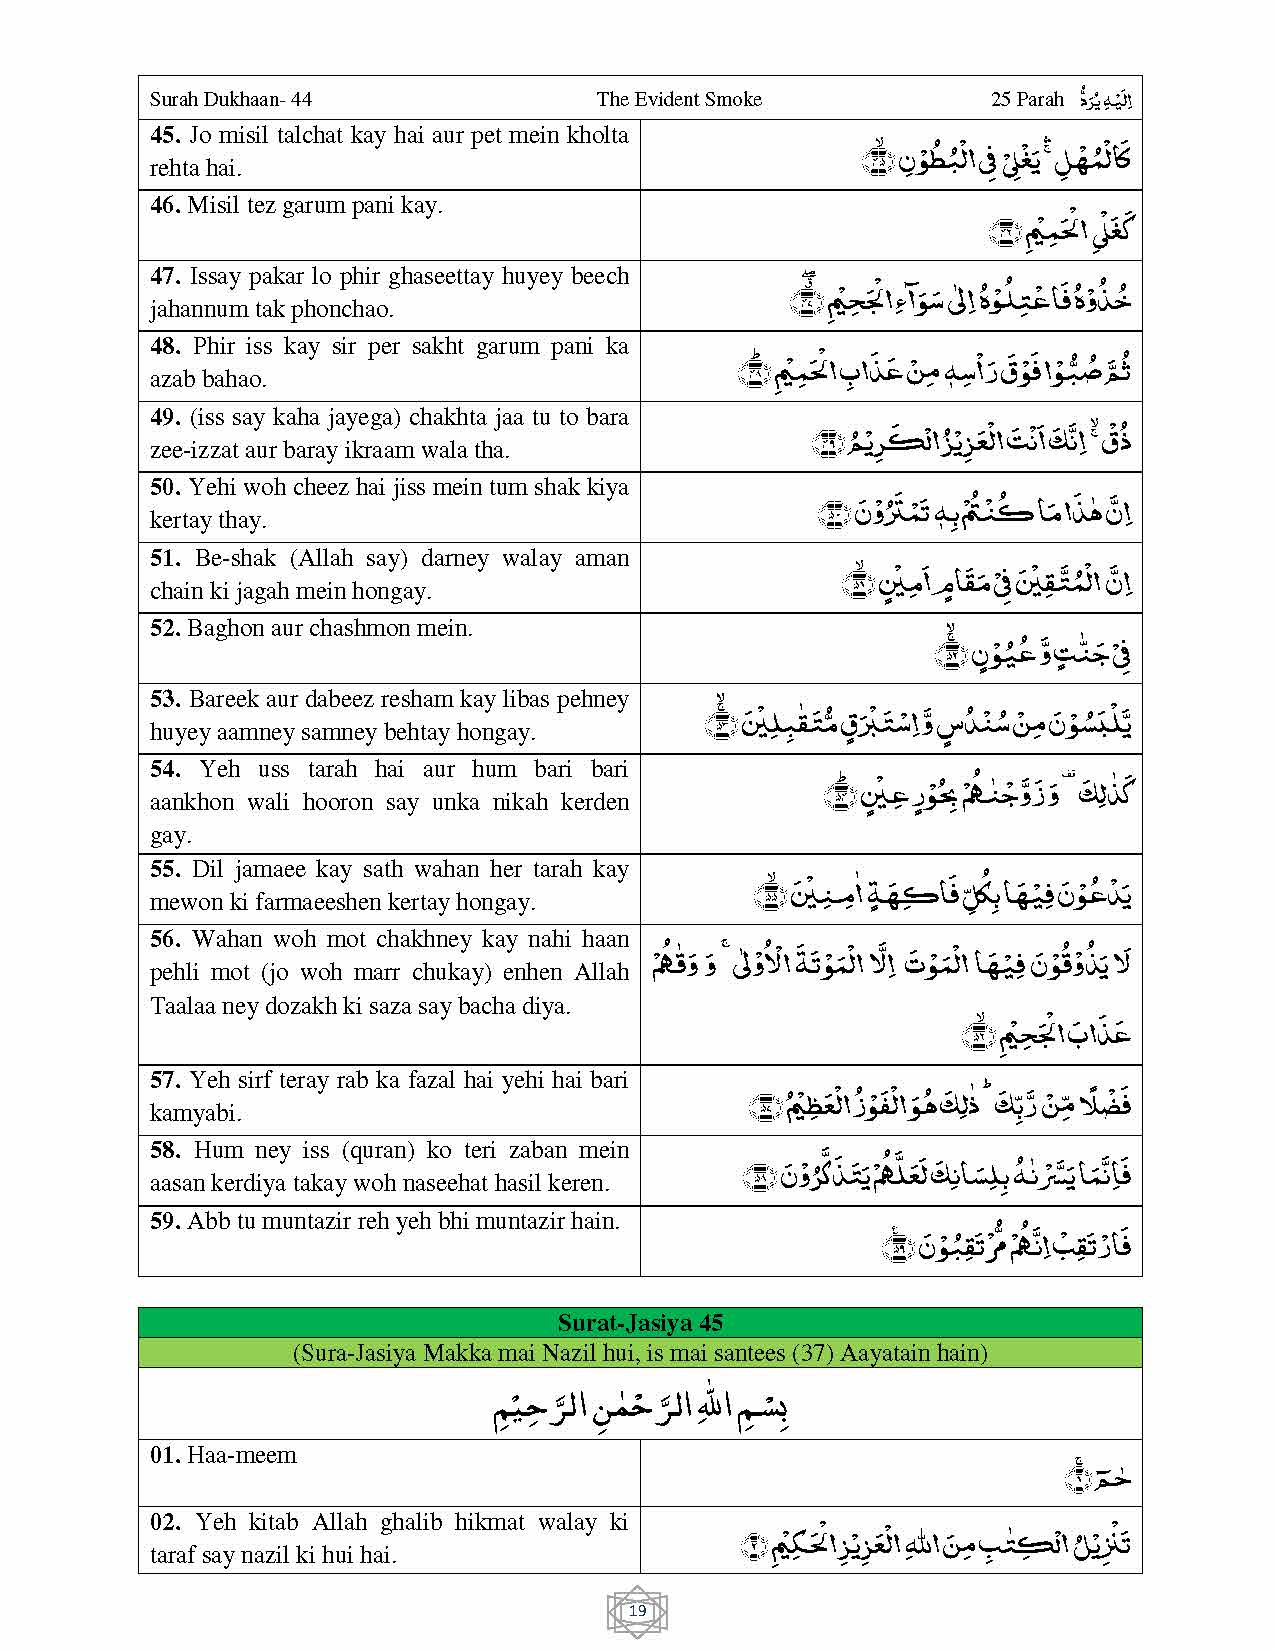 Surah Dukhaan- 44 The Evident Smoke 25 Parah اِلَيْهِ يُرَدُّ
45. Jo misil talchat kay hai aur pet mein kholta
rehta hai.
كَالْمُهْلِ ۛۚ يَغْلِيْ فِي الْبُطُوْنِ ﴿۴۵﴾ۙ
46. Misil tez garum pani kay.
كَغَلْيِ الْحَمِيْمِ ﴿۴۶﴾
47. Issay pakar lo phir ghaseettay huyey beech
jahannum tak phonchao.
خُذُوْهُ فَاعْتِلُوْهُ اِلٰى سَوَآءِ الْجَحِيْمِ ﴿۴۷﴾ۖ
48. Phir iss kay sir per sakht garum pani ka
azab bahao.
ثُمَّ صُبُّوْا فَوْقَ رَاْسِهٖ مِنْ عَذَابِ الْحَمِيْمِ ﴿۴۸﴾ؕ
49. (iss say kaha jayega) chakhta jaa tu to bara
zee-izzat aur baray ikraam wala tha.
ذُقْ ۙۚ اِنَّكَ اَنْتَ الْعَزِيْزُ الْكَرِيْمُ ﴿۴۹﴾
50. Yehi woh cheez hai jiss mein tum shak kiya
kertay thay.
اِنَّ هٰذَا مَا كُنْتُمْ بِهٖ تَمْتَرُوْنَ ﴿۵۰﴾
51. Be-shak (Allah say) darney walay aman
chain ki jagah mein hongay.
اِنَّ الْمُتَّقِيْنَ فِيْ مَقَامٍ اَمِيْنٍ ﴿۵۱﴾ۙ
52. Baghon aur chashmon mein.
فِيْ جَنّٰتٍ وَّ عُيُوْنٍ ﴿۵۲﴾ۚۙ
53. Bareek aur dabeez resham kay libas pehney
huyey aamney samney behtay hongay.
يَّلْبَسُوْنَ مِنْ سُنْدُسٍ وَّ اِسْتَبْرَقٍ مُّتَقٰبِلِيْنَ ﴿۵۳﴾ۚۙ
54. Yeh uss tarah hai aur hum bari bari
aankhon wali hooron say unka nikah kerden
gay.
كَذٰلِكَ ۟ وَ زَوَّجْنٰهُمْ بِحُوْرٍ عِيْنٍ ﴿۵۴﴾ؕ
55. Dil jamaee kay sath wahan her tarah kay
mewon ki farmaeeshen kertay hongay.
يَدْعُوْنَ فِيْهَا بِكُلِّ فَاكِهَةٍ اٰمِنِيْنَ ﴿۵۵﴾ۙ
56. Wahan woh mot chakhney kay nahi haan
pehli mot (jo woh marr chukay) enhen Allah
Taalaa ney dozakh ki saza say bacha diya.
لَا يَذُوْقُوْنَ فِيْهَا الْمَوْتَ اِلَّا الْمَوْتَةَ الْاُوْلٰى ۚ وَ وَقٰهُمْ
عَذَابَ الْجَحِيْمِ ﴿۵۶﴾ۙ
57. Yeh sirf teray rab ka fazal hai yehi hai bari
kamyabi.
فَضْلًا مِّنْ رَّبِّكَ ؕ ذٰلِكَ هُوَ الْفَوْزُ الْعَظِيْمُ ﴿۵۷﴾
58. Hum ney iss (quran) ko teri zaban mein
aasan kerdiya takay woh naseehat hasil keren.
فَاِنَّمَا يَسَّرْنٰهُ بِلِسَانِكَ لَعَلَّهُمْ يَتَذَكَّرُوْنَ ﴿۵۸﴾
59. Abb tu muntazir reh yeh bhi muntazir hain.
فَارْتَقِبْ اِنَّهُمْ مُّرْتَقِبُوْنَ ﴿۵۹﴾
Surat-Jasiya 45
(Sura-Jasiya Makka mai Nazil hui, is mai santees (37) Aayatain hain)
بِسْمِ اللّٰهِ الرَّحْمٰنِ الرَّحِيْمِ
01. Haa-meem
حٰمٓ ﴿۱﴾ۚ
02. Yeh kitab Allah ghalib hikmat walay ki
taraf say nazil ki hui hai.
تَنْزِيْلُ الْكِتٰبِ مِنَ اللّٰهِ الْعَزِيْزِ الْحَكِيْمِ ﴿۲﴾
19